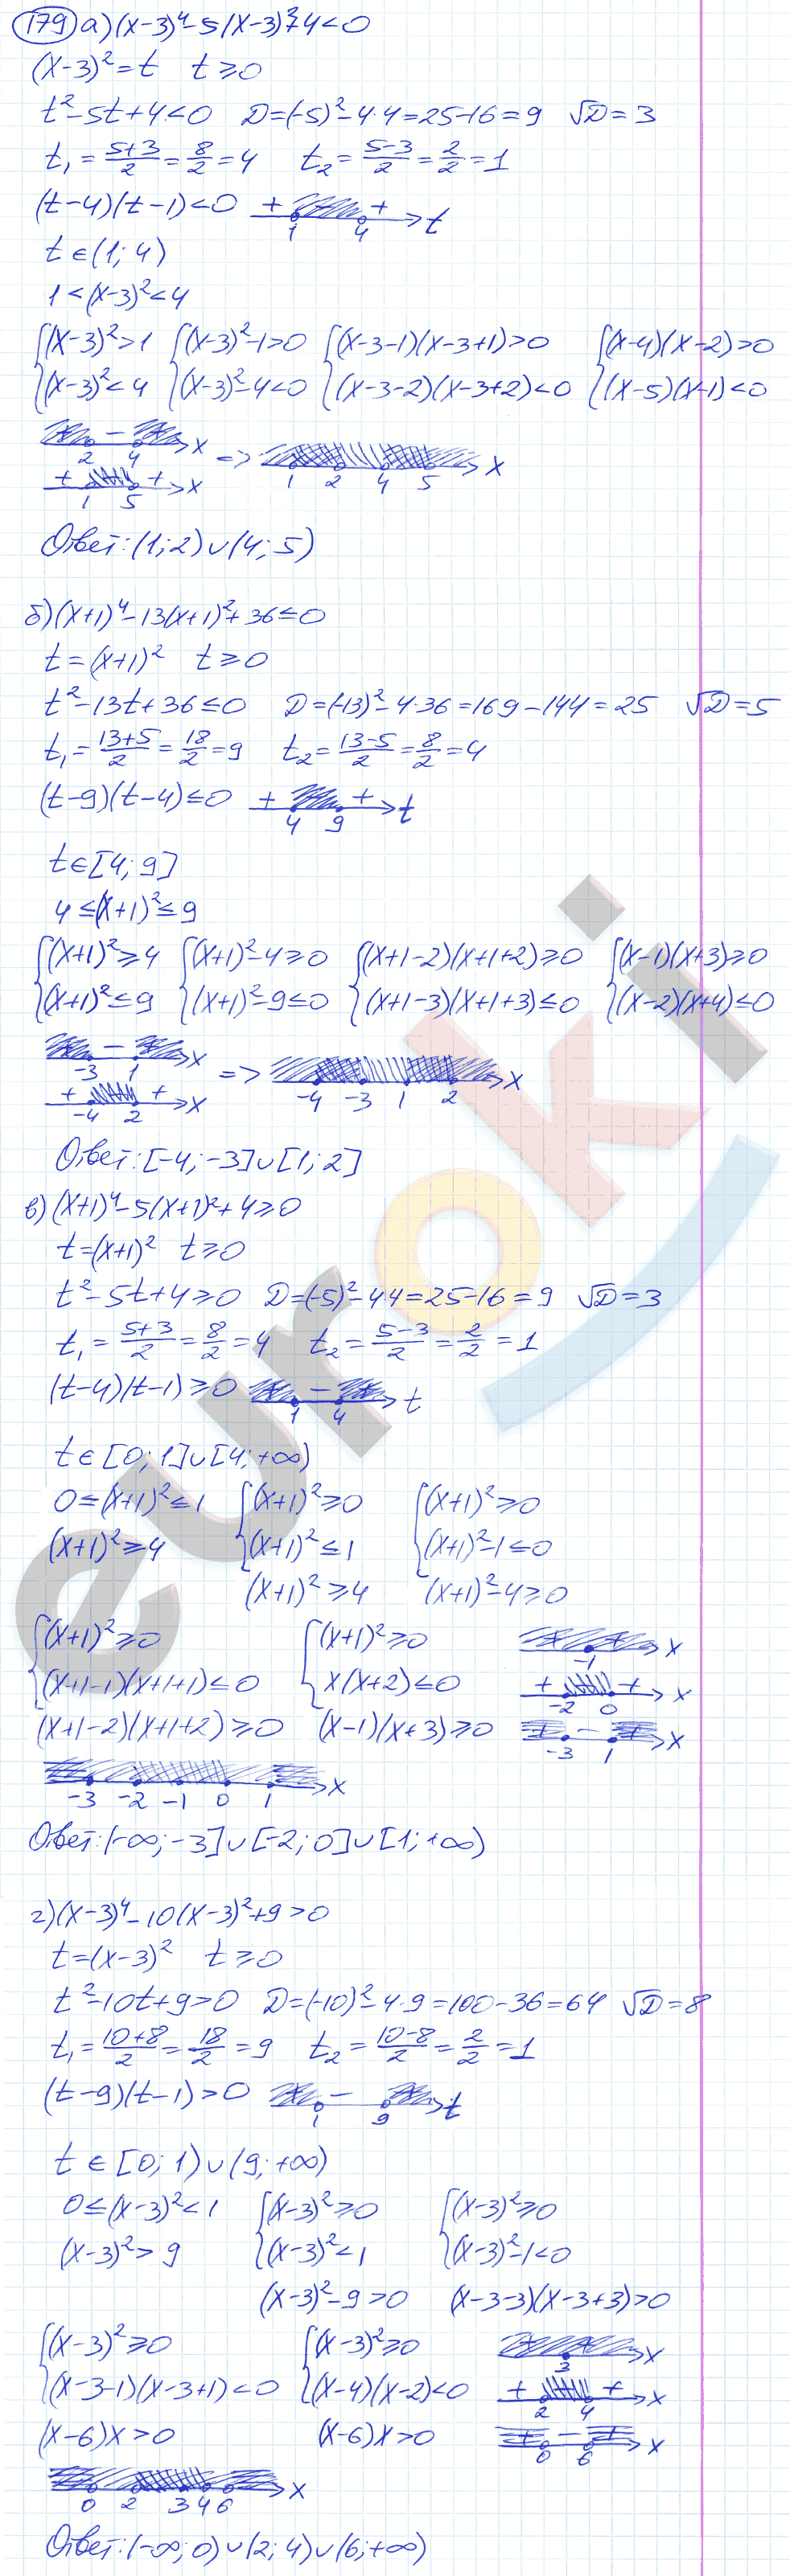 179 а) (x-3)⁴-5(x-3)²+4<0
(x-3)²=t t≥0
t²-5t+4<0 D=(-5)²-4·4=25-16=9 √D=3
t₁=(5+3)/2=8/2=4 t₂=(5-3)/2=2/2=1
(t-4)(t-1)<0 + + t
1 4
t∈(1;4)
1<(x-3)²<4
{(x-3)²>1 {(x-3)²-1>0 {(x-3-1)(x-3+1)>0 {(x-4)(x-2)>0
(x-3)²<4 (x-3)²-4<0 (x-3-2)(x-3+2)<0 (x-5)(x-1)<0
+ - + x
2 4 => x
+ + x 1 2 4 5
1 5
Ответ: (1;2)∪(4;5)
б) (x+1)⁴-13(x+1)²+36≤0
t=(x+1)² t≥0
t²-13t+36≤0 D=(-13)²-4·36=169-144=25 √D=5
t₁=(13+5)/2=18/2=9 t₂=(13-5)/2=8/2=4
(t-9)(t-4)≤0 + + t
4 9
t∈[4;9]
4≤(x+1)²≤9
{(x+1)²≥4 {(x+1)²-4≥0 {(x+1-2)(x+1+2)≥0 {(x-1)(x+3)≥0
(x+1)²≤9 (x+1)²-9≤0 (x+1-3)(x+1+3)≤0 (x-2)(x+4)≤0
+ - + x
-3 1 => x
+ + x -4 -3 1 2
-4 2
Ответ: [-4;-3]∪[1;2]
в) (x+1)⁴-5(x+1)²+4≥0
t=(x+1)² t≥0
t²-5t+4≥0 D=(-5)²-4·4=25-16=9 √D=3
t₁=(5+3)/2=8/2=4 t₂=(5-3)/2=2/2=1
(t-4)(t-1)≥0 + - + t
1 4
t∈[0;1]∪[4;+∞)
0≤(x+1)²≤1 {(x+1)²≥0 {(x+1)²≥0
(x+1)²≥4 (x+1)²≤1 (x+1)²-1≤0
(x+1)²≥4 (x+1)²-4≥0
{(x+1)²≥0 {(x+1)²≥0 + + x
-1
(x+1-1)(x+1+1)≤0 x(x+2)≤0 + + x
-2 0
(x+1-2)(x+1+2)≥0 (x-1)(x+3)≥0 + - + x
-3 1
x
-3 -2 -1 0 1
Ответ: (-∞;-3]∪[-2;0]∪[1;+∞)
г) (x-3)⁴-10(x-3)²+9>0
t=(x-3)² t≥0
t²-10t+9>0 D=(-10)²-4·9=100-36=64 √D=8
t₁=(10+8)/2=18/2=9 t₂=(10-8)/2=2/2=1
(t-9)(t-1)>0 + - + t
1 9
t∈[0;1)∪(9;+∞)
0≤(x-3)²<1 {(x-3)²≥0 {(x-3)²≥0
(x-3)²>9 (x-3)²<1 (x-3)²-1<0
(x-3)²-9>0 (x-3-3)(x-3+3)>0
{(x-3)²≥0 {(x-3)²≥0 + + x
3
(x-3-1)(x-3+1)<0 (x-4)(x-2)<0 + + x
2 4
(x-6)x>0 (x-6)x>0 + - + x
0 6
x
0 2 3 4 6
Ответ: (-∞;0)∪(2;4)∪(6;+∞)
euroki